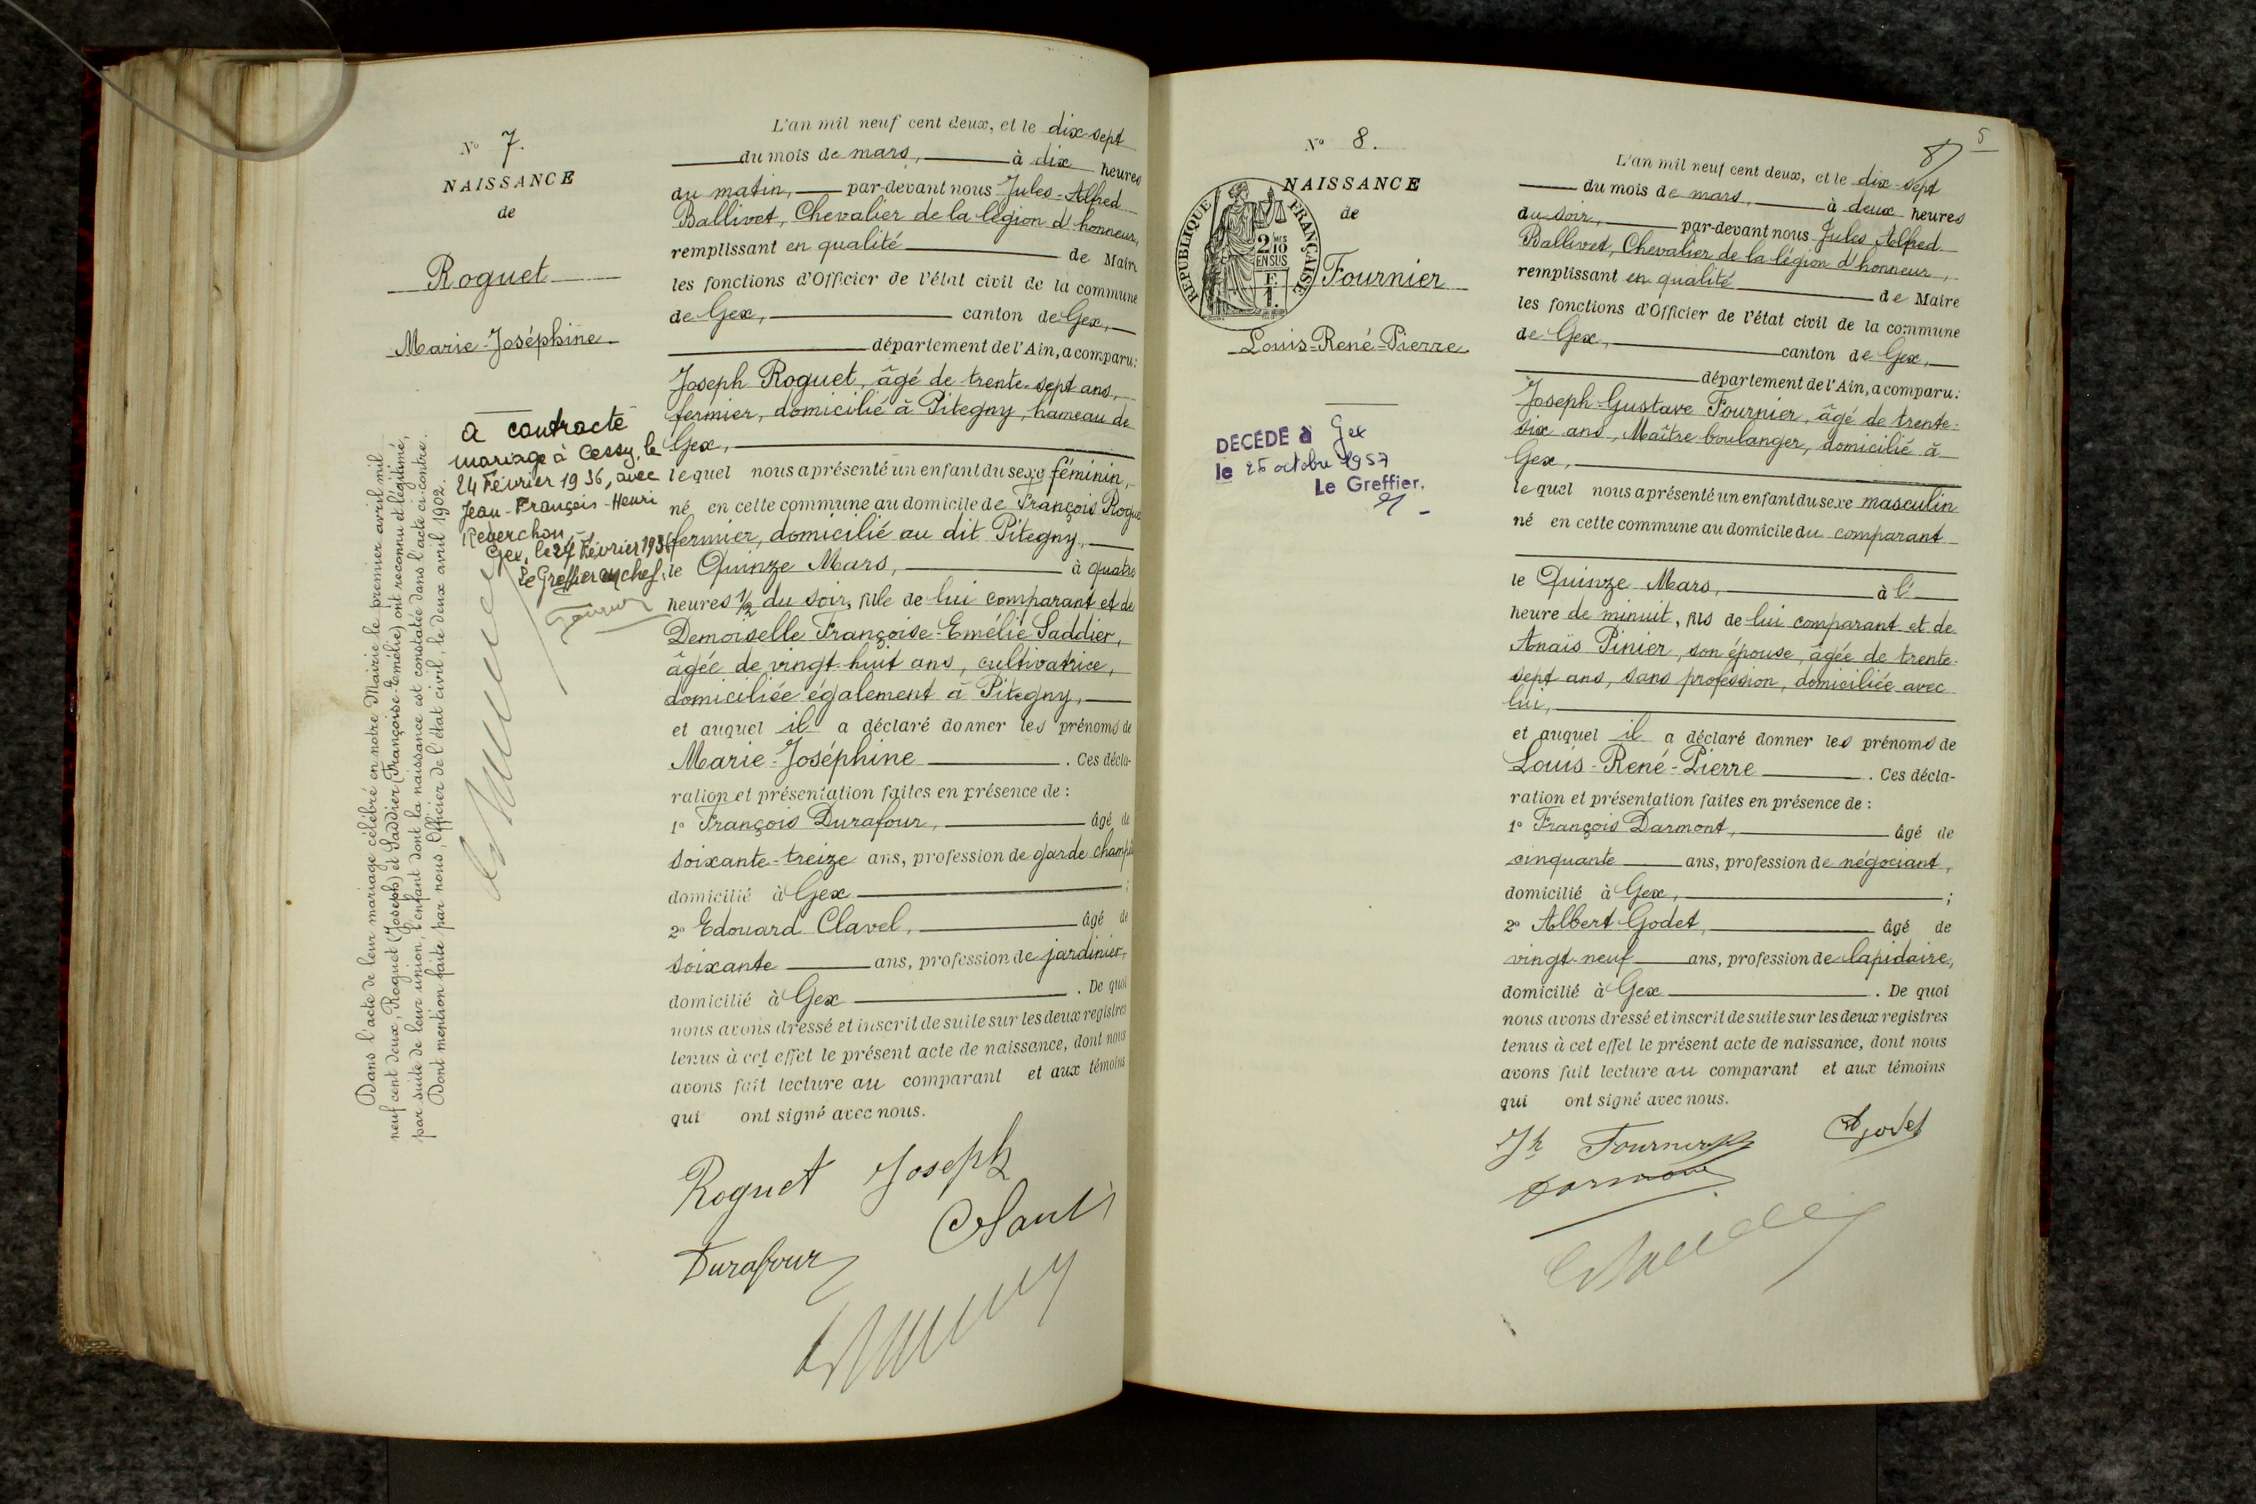 N° 7.
NAISSANCE
de
Roguet
Marie-Joséphine
a contracté
mariage à Cessy, le
24 Février 1936, avec
Jean-François-Henri
Reverchon,
Gex, le 27 Février 1936
Le Greffier en chef:
Dans l'acte de leur mariage célébré en notre Mairie le premier avril mil
neuf cent deux, Roguet (Joseph) et Saddier (Françoise-Emélie) ont reconnu et légitimé,
par suite de leur union, l'enfant dont la naissance est constatée dans l'acte ci-contre.
Dont mention faite par nous, Officier de l'état civil, le deux avril 1902.
L'an mil neuf cent deux, et le dix-sept
du mois de mars, à dix heures
du matin, par-devant nous Jules-Alfred
Ballivet, Chevalier de la légion d'honneur,
remplissant en qualité de Maire
les fonctions d'Officier de l'état civil de la commune
de Gex, canton de Gex,
département de l'Ain, a comparu:
Joseph Roguet, âgé de trente-sept ans,
fermier, domicilié à Pitegny, hameau de
Gex,
lequel nous a présenté un enfant du sexe féminin,
né en cette commune au domicile de François Rogue
fermier, domicilié au dit Pitegny,
le Quinze Mars, à quatre
heures ½ du soir, fille de lui comparant et de
Demoiselle Françoise-Emélie Saddier,
âgée de vingt-huit ans, cultivatrice,
domiciliée également à Pitegny,
et auquel il a déclaré donner les prénoms de
Marie-Joséphine . Ces décla-
ration et présentation faites en présence de :
1° François Durafour, âgé de
soixante-treize ans, profession de garde champê
domicilié à Gex ;
2° Edouard Clavel, âgé de
soixante ans, profession de jardinier,
domicilié à Gex . De quoi
nous avons dressé et inscrit de suite sur les deux registres
tenus à cet effet le présent acte de naissance, dont nous
avons fait lecture au comparant et aux témoins
qui ont signé avec nous.
Roguet Joseph
Durafour
5
8
N° 8.
NAISSANCE
de
RÉPUBLIQUE FRANÇAISE
2/10 MES
EN SUS
F.
1.
Fournier
Louis-René-Pierre
DÉCÉDÉ à Gex
le 25 octobre 1957
Le Greffier.
L'an mil neuf cent deux, et le dix-sept
du mois de mars, à deux heures
du soir, par-devant nous Jules Alfred
Ballivet, Chevalier de la légion d'honneur,
remplissant en qualité de Maire
les fonctions d'Officier de l'état civil de la commune
de Gex, canton de Gex,
département de l'Ain, a comparu:
Joseph-Gustave Fournier, âgé de trente-
six ans, Maître boulanger, domicilié à
Gex,
lequel nous a présenté un enfant du sexe masculin
né en cette commune au domicile du comparant
le Quinze Mars, à l'
heure de minuit, fils de lui comparant et de
Anaïs Pinier, son épouse, âgée de trente-
sept ans, sans profession, domiciliée avec
lui,
et auquel il a déclaré donner les prénoms de
Louis-René-Pierre . Ces décla-
ration et présentation faites en présence de :
1° François Darmont, âgé de
cinquante ans, profession de négociant,
domicilié à Gex, ;
2° Albert Godet, âgé de
vingt-neuf ans, profession de lapidaire,
domicilié à Gex . De quoi
nous avons dressé et inscrit de suite sur les deux registres
tenus à cet effet le présent acte de naissance, dont nous
avons fait lecture au comparant et aux témoins
qui ont signé avec nous.
Jh Fournier
A Godet
Darmont